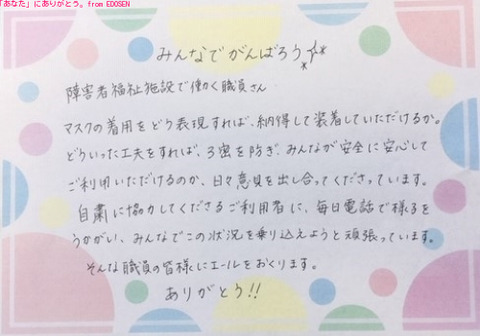 「あなた」にありがとう。from EDOSEN
みんなでがんばろう
障害者福祉施設で働く職員さん
マスクの着用をどう表現すれば、納得して装着していただけるか。
どういった工夫をすれば、3密を防ぎ、みんなが安全に安心して
ご利用いただけるのか、日々意見を出し合ってくださっています。
自粛に協力してくださるご利用者に、毎日電話で様子を
うかがい、みんなでこの状況を乗り込えようと頑張っています。
そんな職員の皆様にエールをおくります。
ありがとう!!